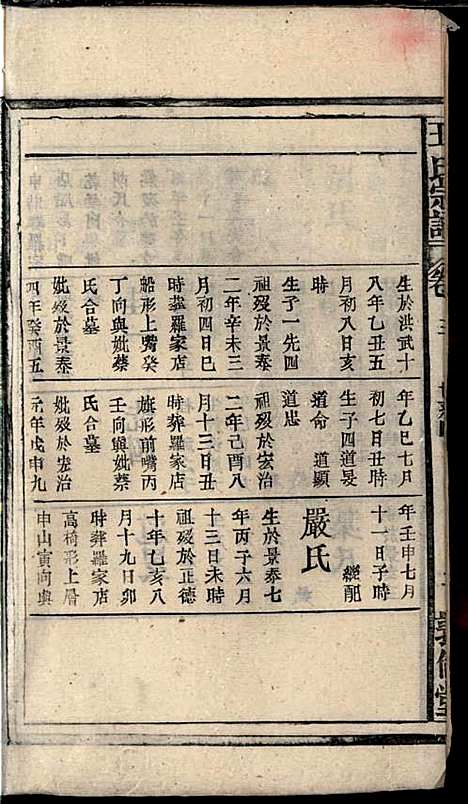 王氏宗譜
卷
生於洪武十
八年乙丑五
月初八日亥
時
生子一先四
祖歿於景泰
二年辛未三
月初四日巳
時葬羅家店
船形上嘴癸
丁向與妣蔡
氏合墓
妣歿於景泰
四年癸酉五
年乙巳七月
初七日丑時
生子四道旻
道命 道顯
道忠
祖歿於宏治
二年己酉八
月十三日丑
時葬羅家店
旗形前嘴丙
壬向與妣蔡
氏合墓
妣歿於宏治
元年戊申九
年壬申七月
十一日子時
繼配
嚴氏
生於景泰七
年丙子六月
十三日未時
祖歿於正德
十年乙亥八
月十九日卯
時葬羅家店
高椅形上層
申山寅向與